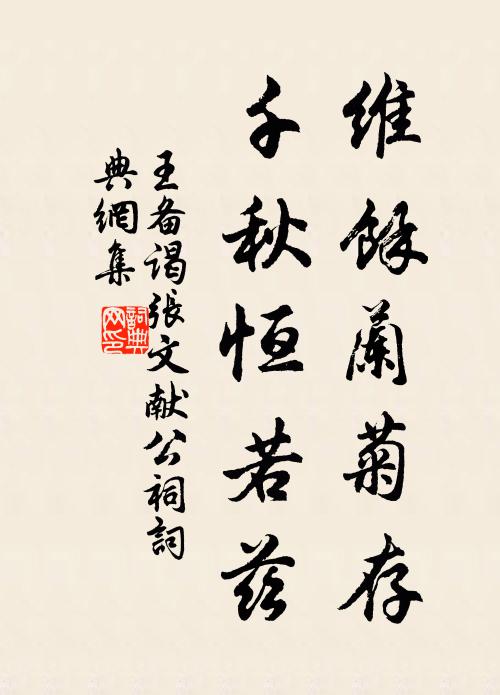 維餘蘭菊存
千秋恒若茲
王备谒張文献公祠詞
典網集
詞典
网印